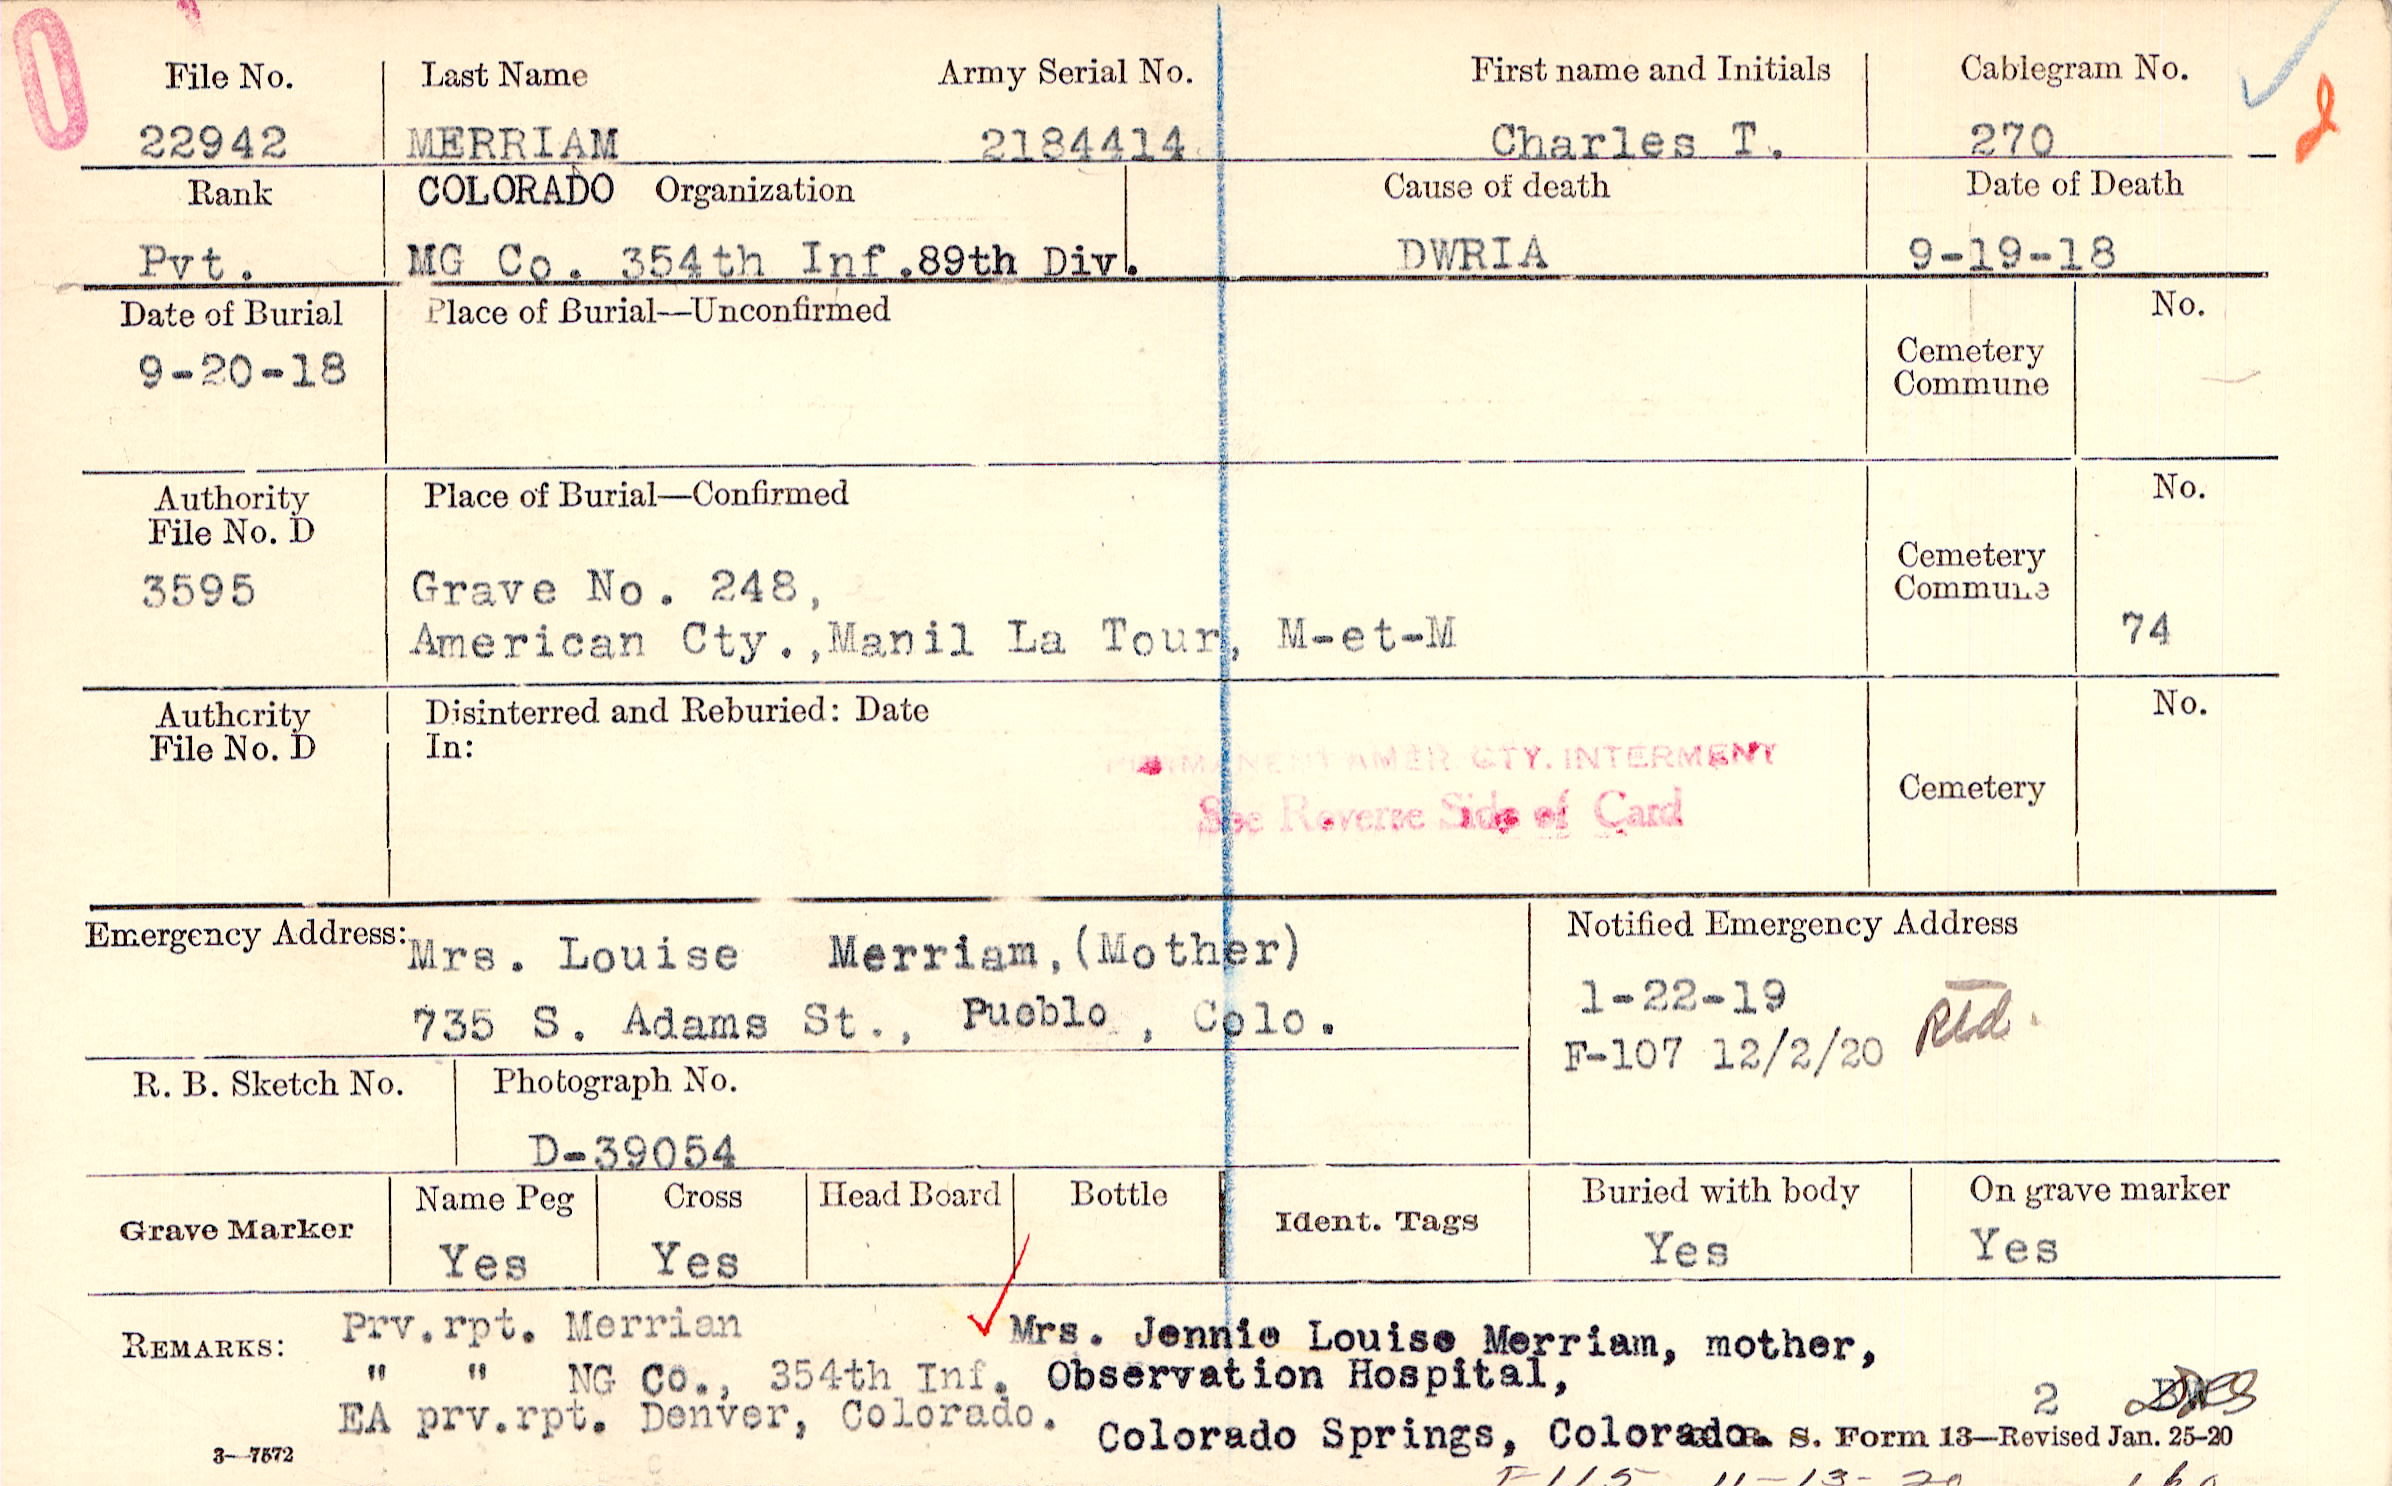 File No. Last Name Army Serial No. First name and Initials Cablegram No.
22942 MERRIAM 2184414 Charles T. 270
Rank COLORADO Organization Cause of death Date of Death
Pvt. MG Co. 354th Inf.89th Div. DWRIA 9-19-18
Date of Burial Place of Burial—Unconfirmed No.
9-20-18
Cemetery
Commune
Authority Place of Burial—Confirmed No.
File No. D
Cemetery
Commune
3595 Grave No. 248,
American Cty.,Manil La Tour, M-et-M 74
Authority Disinterred and Reburied: Date No.
File No. D In:
PERMANENT AMER. CTY. INTERMENT
See Reverse Side of Card
Cemetery
Emergency Address: Mrs. Louise Merriam,(Mother)
735 S. Adams St., Pueblo, Colo.
Notified Emergency Address
1-22-19
F-107 12/2/20
R. B. Sketch No. Photograph No.
D-39054
Grave Marker Name Peg Cross Head Board Bottle Ident. Tags Buried with body On grave marker
Yes Yes Yes Yes
REMARKS: Prv.rpt. Merrian
" " NG Co., 354th Inf.
EA prv.rpt. Denver, Colorado.
Mrs. Jennie Louise Merriam, mother,
Observation Hospital,
Colorado Springs, Colorado.
2
3—7572
S. Form 13—Revised Jan. 25-20